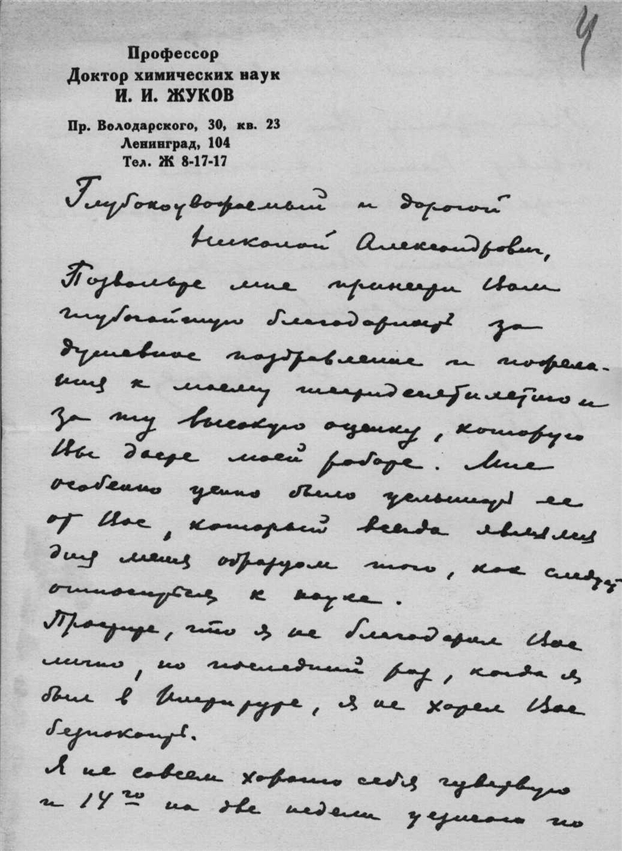 Профессор
Доктор химических наук
И. И. ЖУКОВ
Пр. Володарского, 30, кв. 23
Ленинград, 104
Тел. Ж 8-17-17
Глубокоуважаемый и дорогой
Николай Александрович,
Позвольте мне принести Вам
глубочайшую благодарность за
душевное поздравление и пожела-
ния к моему шестидесятилетию и
за ту высокую оценку, которую
Вы даете моей работе. Мне
особенно ценно было услышать ее
от Вас, который всегда являлся
для меня образцом того, как следует
относиться к науке.
Простите, что я не благодарил Вас
лично, но последний раз, когда я
был в Институте, я не хотел Вас
безпокоить.
Я не совсем хорошо себя чувствую
и 14го на две недели уезжаю по